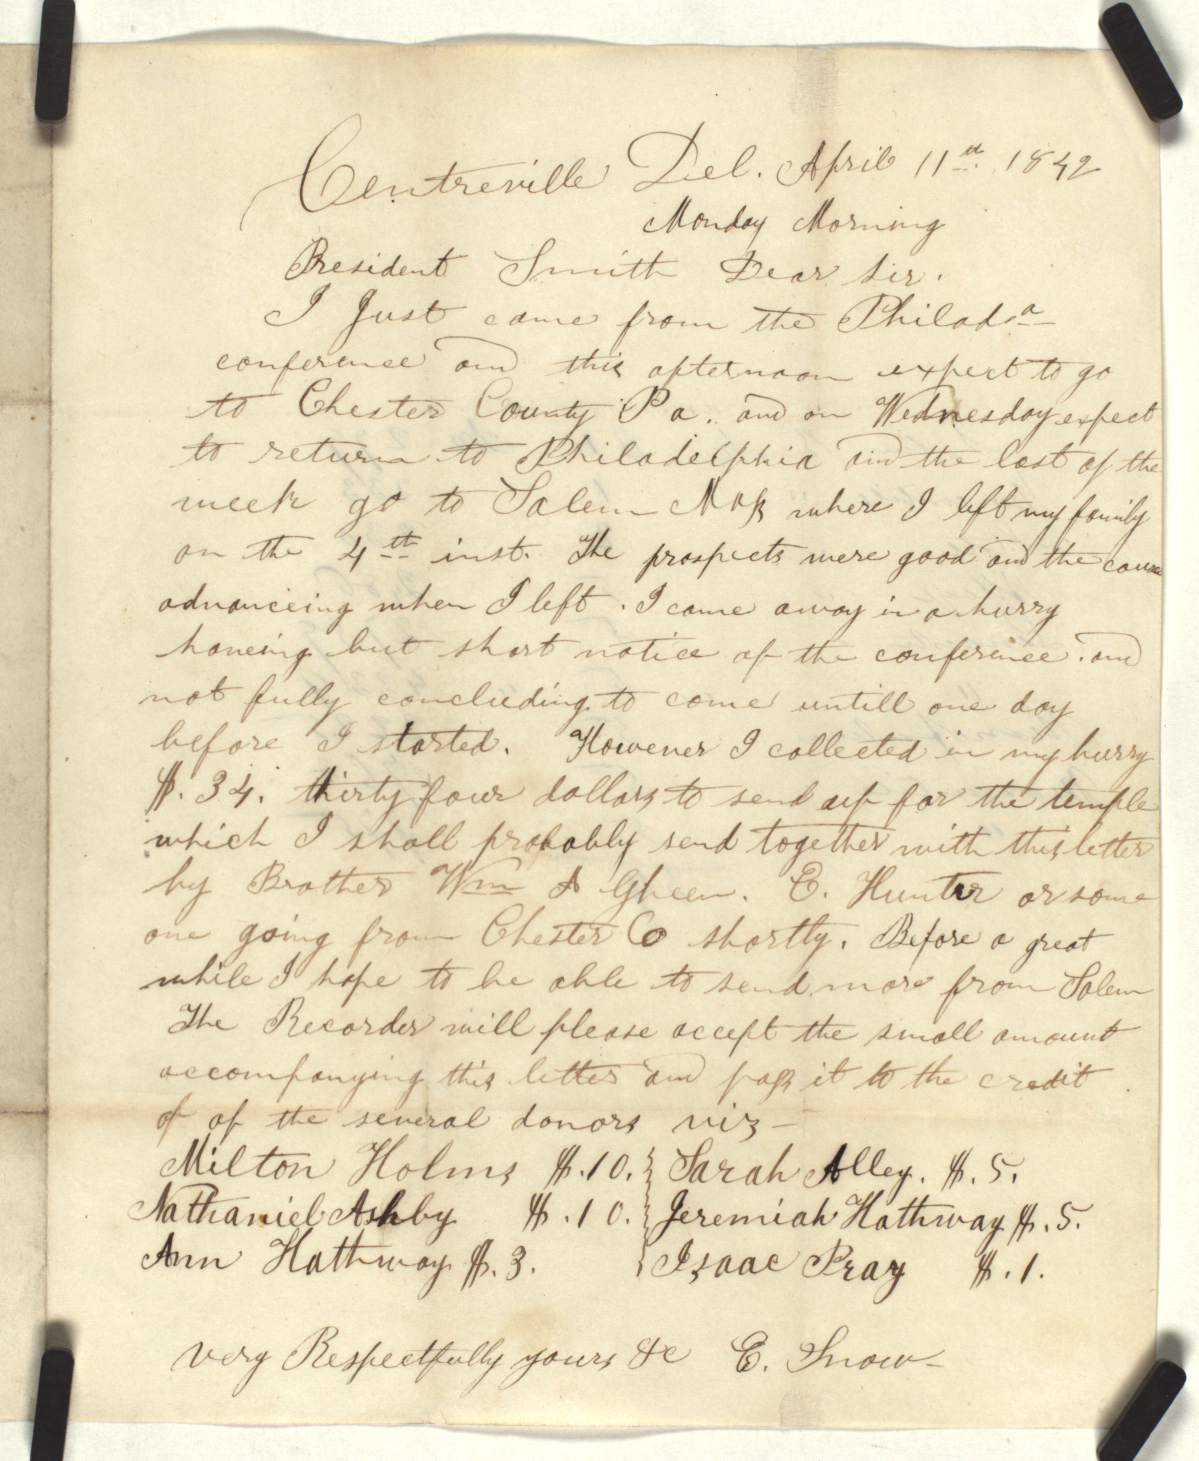 Centreville Del. April 11th. 1842
Monday Morning
President Smith Dear Sir.
I Just came from the Philada
conference and this afternoon expect to go
to Chester County Pa. and on Wednesday expect
to return to Philadelphia and the last of the
week go to Salem Mass where I left my family
on the 4th inst. The prospects were good and the cause
advanceing when I left. I came away in a hurry
haveing but short notice of the conference. and
not fully concluding to come untill one day
before I started. However I collected in my hurry
$. 34. thirty four dollars to send up for the temple
which I shall probably send together with this letter
by Brother Wm A Gheen. E. Hunter or some
one going from Chester Co shortly. Before a great
while I hope to be able to send more from Salem
The Recorder will please accept the small amount
accompanying this letter and pass it to the credit
of of the several donors viz—
Milton Holms $.10. } Sarah Alley. $.5.
Nathaniel Ashby $.10. } Jeremiah Hathway $.5.
Ann Hathway $.3. } Isaac Pray $.1.
very Respectfully yours &c E. Snow—